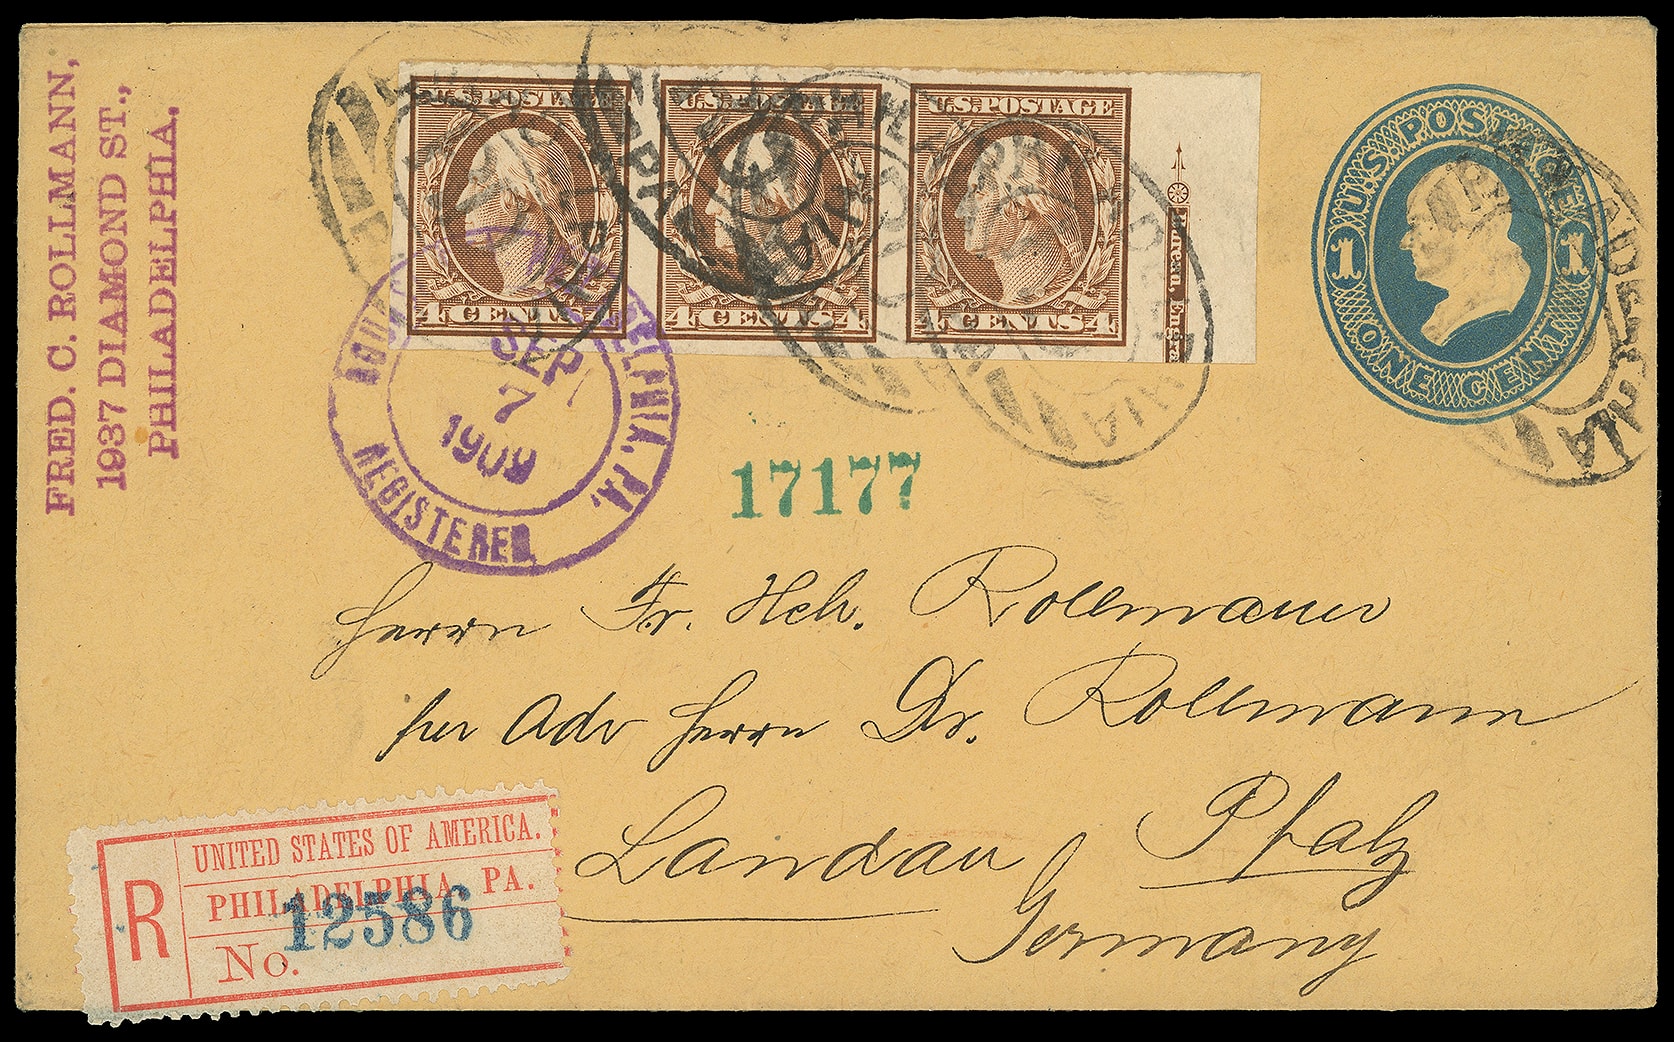 FRED. C. ROLLMANN,
1937 DIAMOND ST.,
PHILADELPHIA.
U.S. POSTAGE
4 CENTS 4
U.S. POSTAGE
4 CENTS 4
U.S. POSTAGE
4 CENTS 4
Bureau Engra
U.S. POSTAGE
1 1
ONE CENT
PHILADELPHIA, PA.
SEP
7
1909
REGISTERED
17177
Herrn Fr. Hch. Rollmann
per Adr Herrn Dr. Rollmann
Landau Pfalz
Germany
R
UNITED STATES OF AMERICA.
PHILADELPHIA, PA.
No. 12586